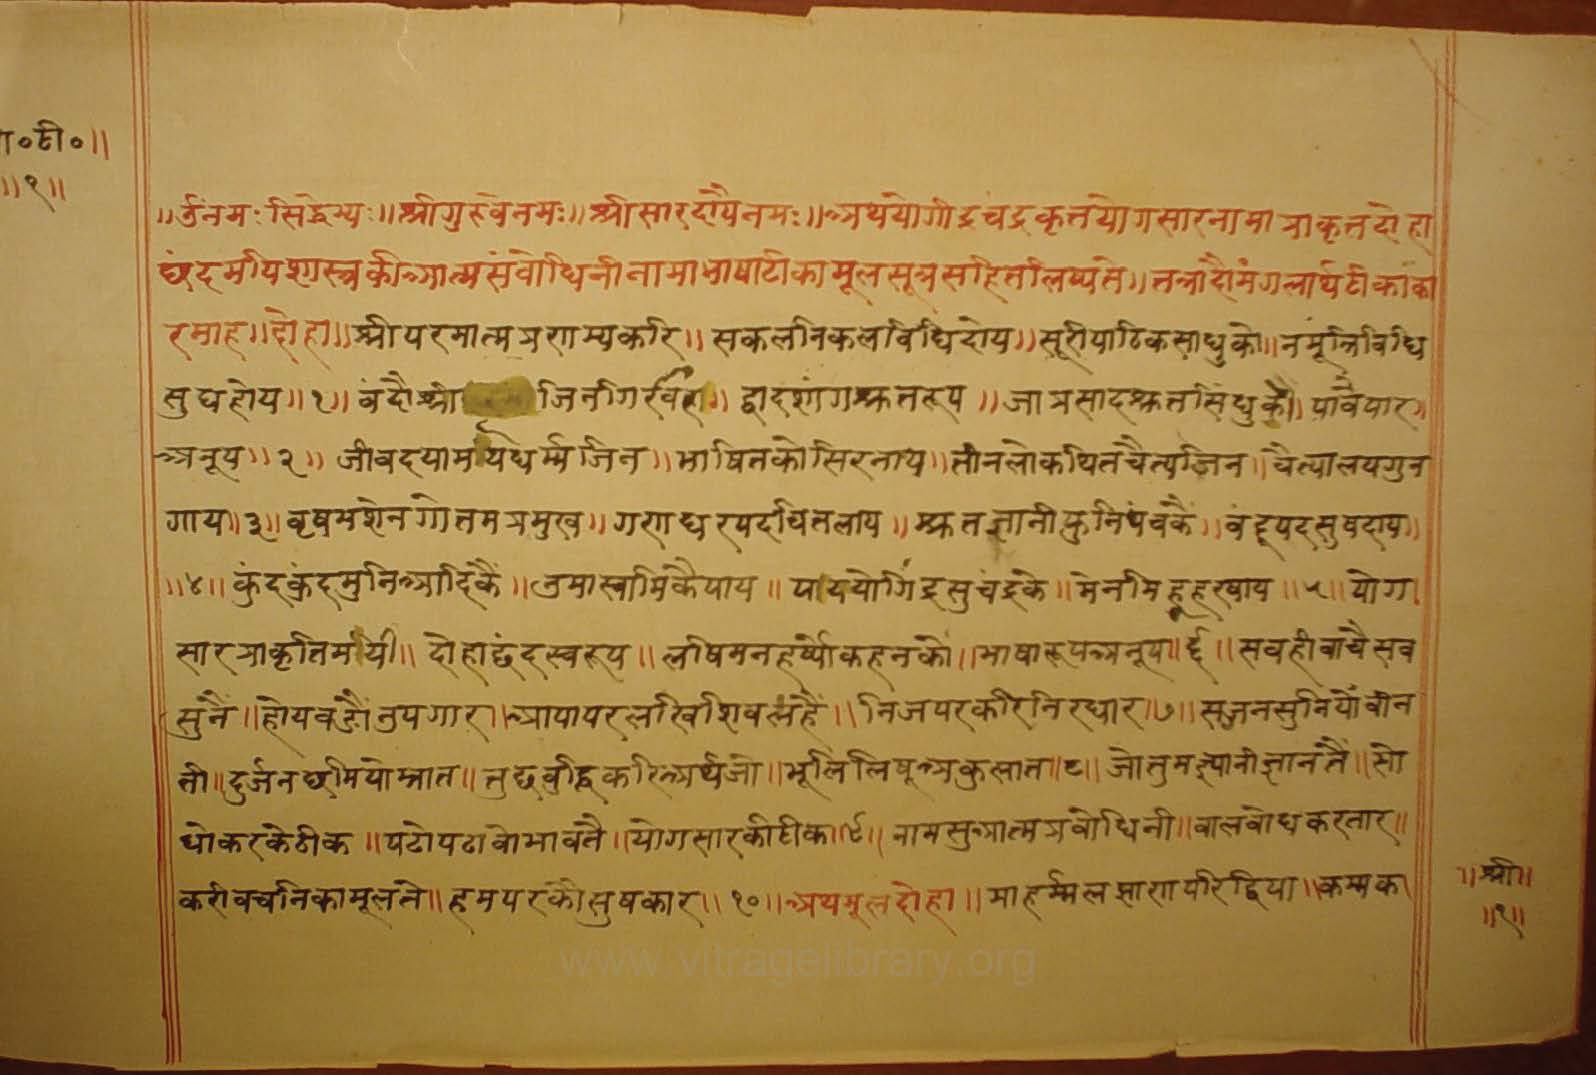 ॰टी॰॥
॥१॥
॥ॐनमः सिद्धेभ्यः॥श्रीगुरुवेनमः॥श्रीसारदायैनमः॥अथयोगींद्रचंद्रकृतयोगसारनामाप्राकृतदोहा
छंदमयिशास्त्रकीआत्मसंबोधिनीनामाभाषाटीकामूलसूत्रसहितलिष्यते॥तत्रादौमंगलार्थटीकाका
रमाह॥दोहा॥श्रीपरमात्मप्रणम्यकरि॥सकलनिकलविधिदोय॥सूरीपाठिकसाधुको॥नमूंत्रिविधि
सुधहोय॥१॥वंदौश्री जिनगिरवरा॥द्वादशांगश्रुतरूप॥जाप्रसादश्रुतसिंधुकै॥पावैपार
अनूप॥२॥जीवदयामयधर्मजिन॥भाषितकोसिरनाय॥तीनलोकथितचैत्यजिन॥चैत्यालयगुन
गाय॥३॥वृषभशेनगोतमप्रमुख॥गणधरपदचितलाय॥श्रुतज्ञानीफुनिपंचकै॥वंदूपदसुषदाय
॥४॥कुंदकुंदमुनिआदिकैं॥उमास्वामिकैपाय॥पाययोगिंद्रसुचंद्रके॥मेनमिहूहरषाय॥५॥योग
सारप्राकृतिमयी॥दोहाछंदस्वरूप॥लषिमनहर्ष्योकहनको॥भाषारूपअनूप॥६॥सवहीवाचैसव
सुनैं॥होयवडौंउपगार॥आपापरलखिशिवलहैं॥निजपरकरिनिरधार॥७॥सज्जनसुनियोंवीन
ती॥दुर्जनछमियोभ्रात॥तुछवुद्धिकरिअर्थजो॥भूलिलिषूअकुलात॥८॥जोतुमज्ञानीज्ञानतैं॥सो
धोकरकेठीक॥पढोपढावोभावतै॥योगसारकीटीक॥९॥नामसुआत्मप्रवोधिनी॥वालवोधकरतार॥
करीवचनिकामूलते॥हमपरकौसुषकार॥१०॥अथमूलदोहा॥ कम्मक
॥श्री॥
॥१॥
www.vitragelibrary.org